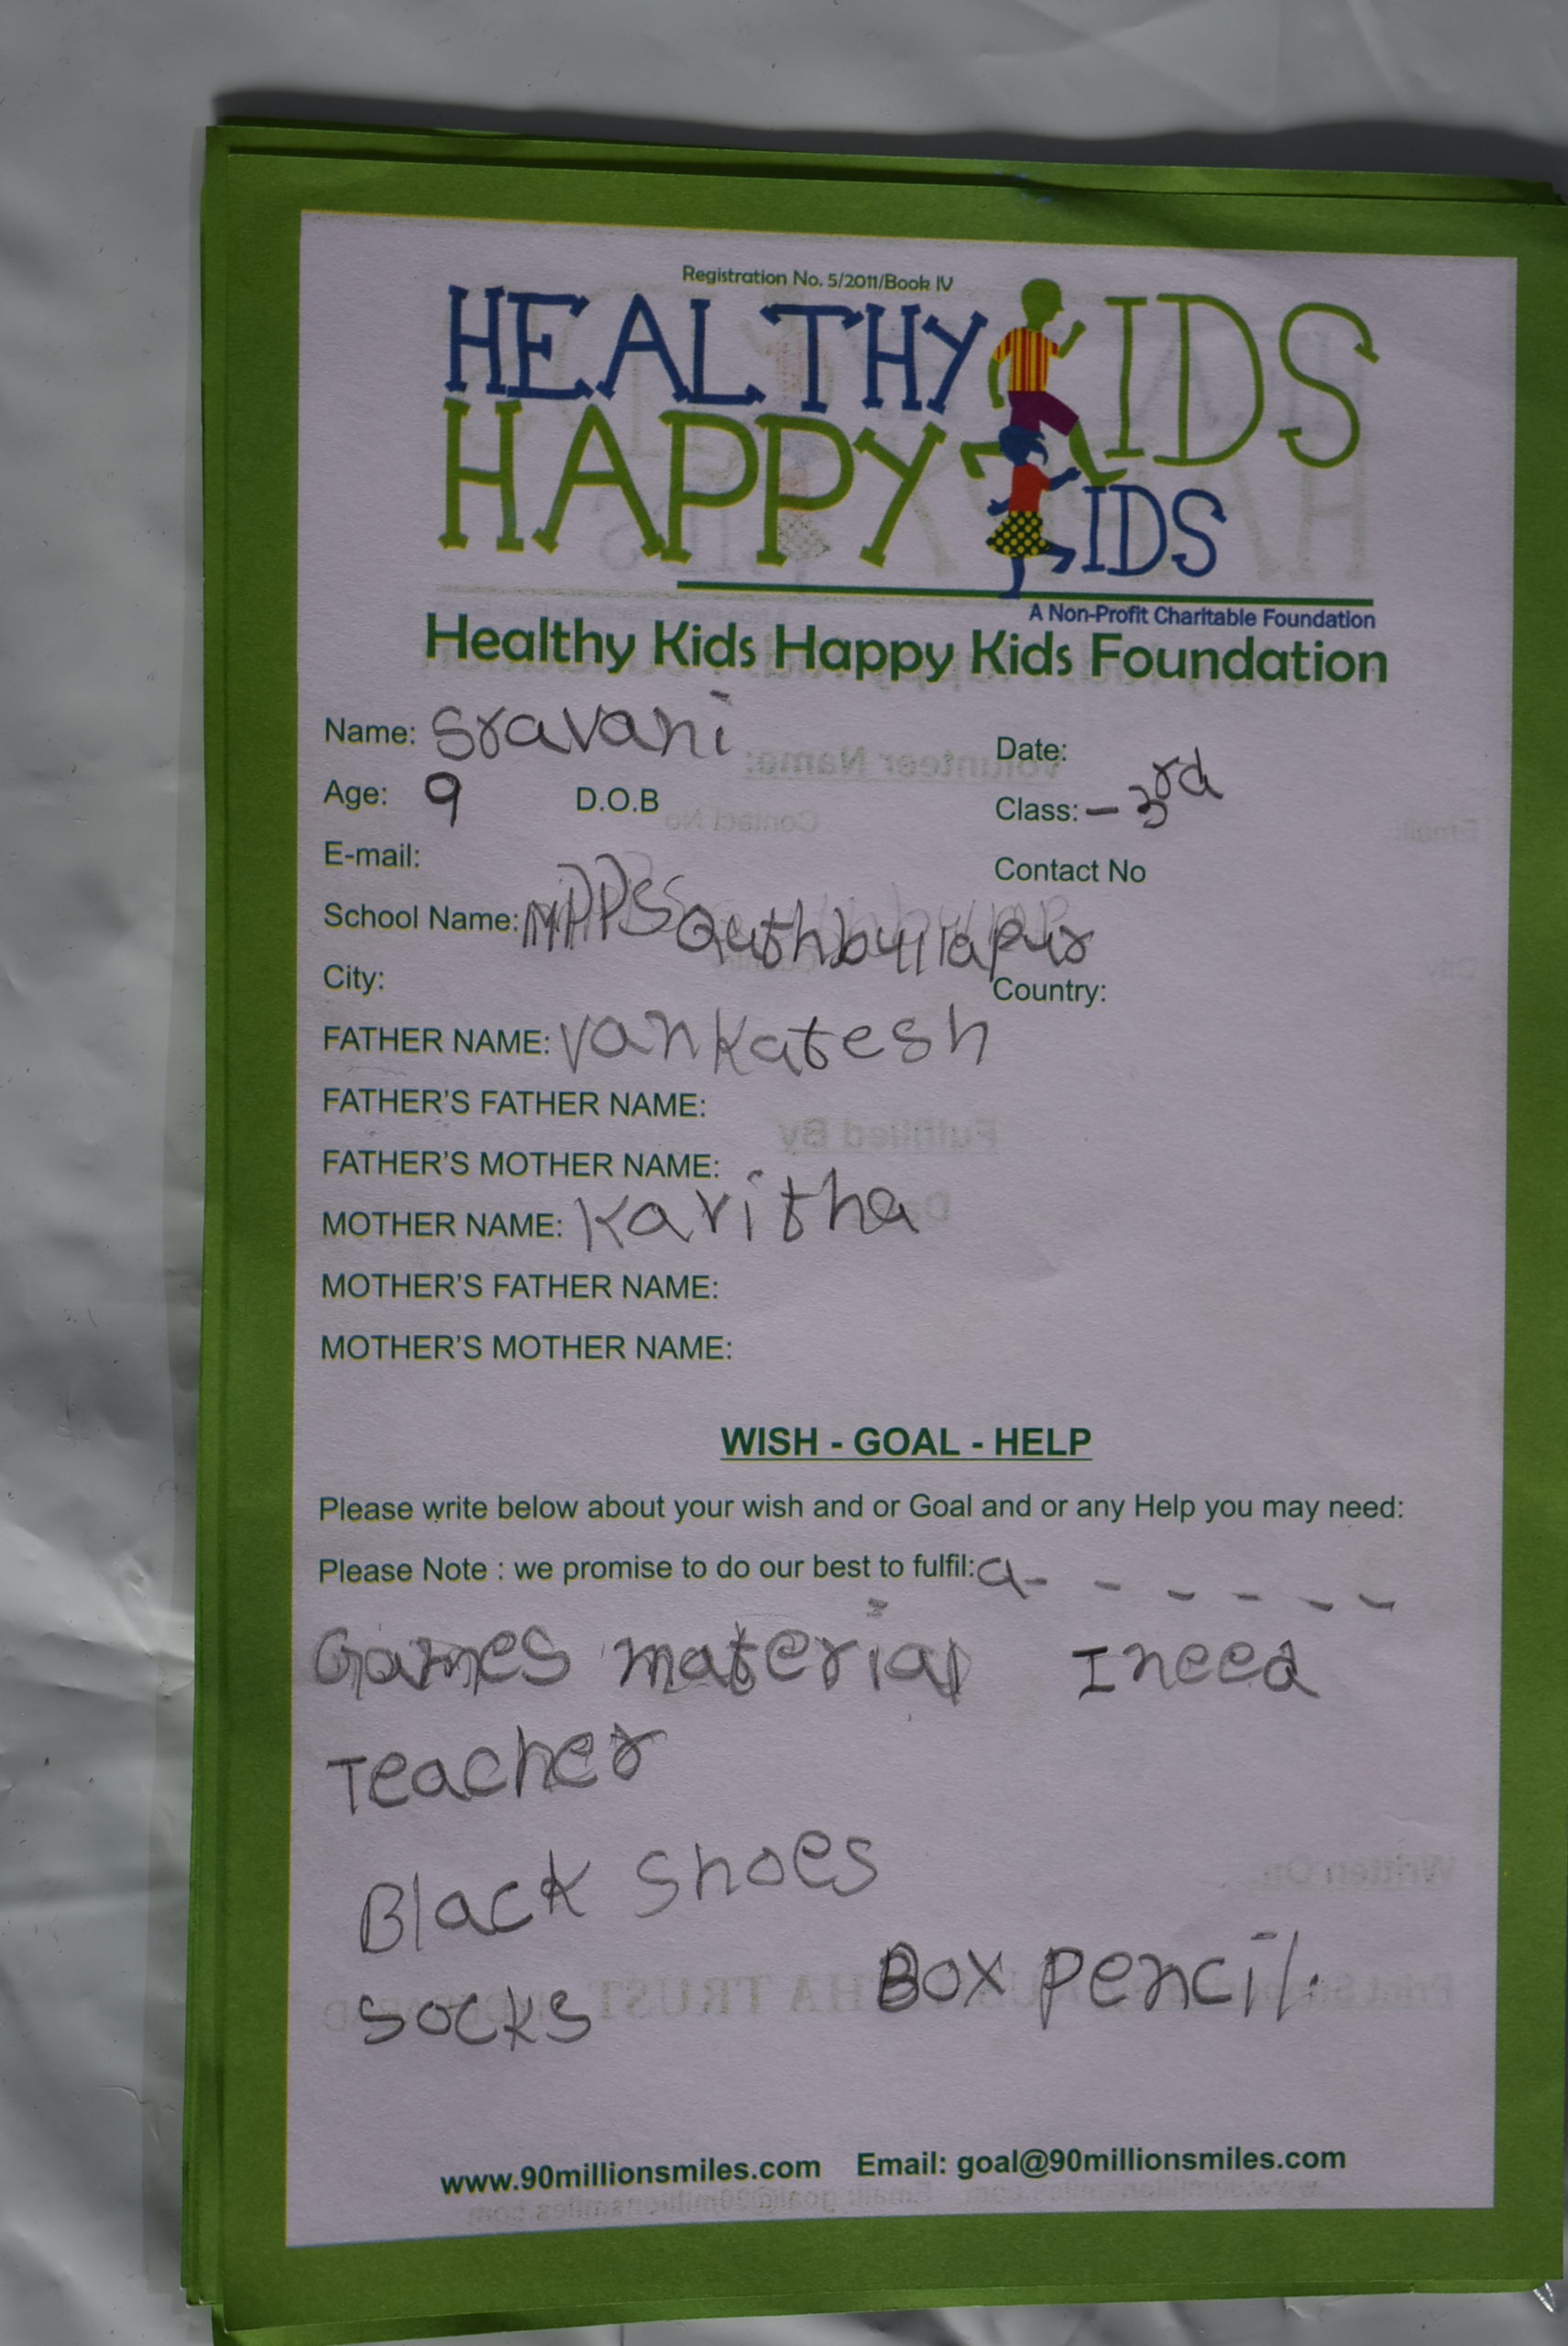 Registration No. 5/2011/Book IV
HEALTHY KIDS
HAPPY KIDS
A Non-Profit Charitable Foundation
Healthy Kids Happy Kids Foundation
Name: Sravani Date:
Age: 9 D.O.B Class: - 3rd
E-mail: Contact No
School Name: MPPS Quthbullapur
City: Country:
FATHER NAME: Vankatesh
FATHER'S FATHER NAME:
FATHER'S MOTHER NAME:
MOTHER NAME: Kavitha
MOTHER'S FATHER NAME:
MOTHER'S MOTHER NAME:
WISH - GOAL - HELP
Please write below about your wish and or Goal and or any Help you may need:
Please Note : we promise to do our best to fulfil: a- - - - - -
Games material I need
Teacher
Black Shoes
Socks Box pencil.
www.90millionsmiles.com Email: goal@90millionsmiles.com